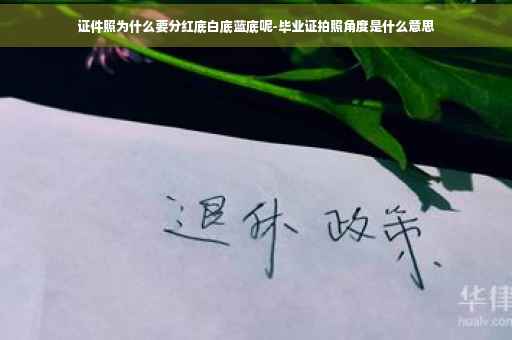 证件照为什么要分红底白底蓝底呢-毕业证拍照角度是什么意思
退休 政策
华律
hualv.com